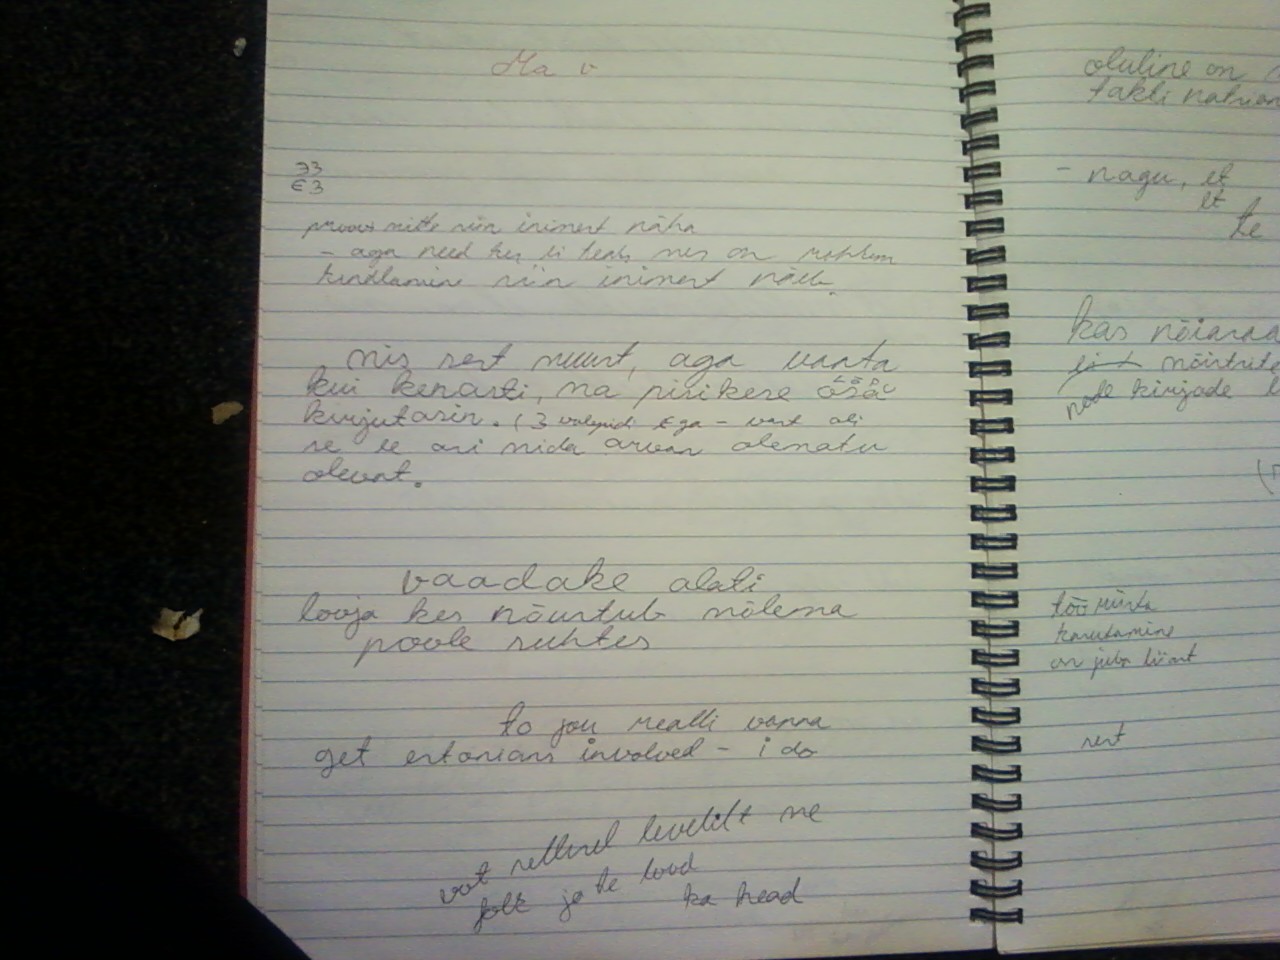 Ma v
Э3
€3
proovi mitte siin inimest näha
- aga need kes ei tea, mis on rohkem
kindlamini siin inimest näeb.
mis sest muust, aga vaata
kui kenasti, ma pisikese osa
kirjutasin. (3 valepidi €ga - vast oli
se se asi mida arvan olematu
olevat.
vaadake alati
looja kes nõustub mõlema
poole suhtes
to you really wanna
get estonians involved - i do
vot sellisel levelilt me
folk ja te lood
ka head
oluline on
takti
- nagu, et
et
te
kas
nõistrite
node kirjade
töö riista
kasutamine
on juba liiast
sest